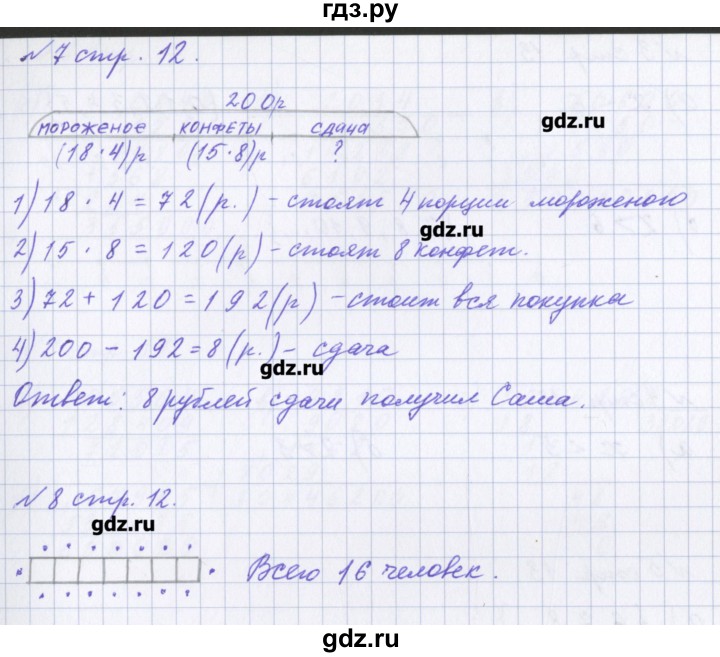 гдз.ру
№7 стр. 12.
200р
мороженое конфеты сдача
gdz.ru
(18·4)р (15·8)р ?
1) 18 · 4 = 72 (р.) - стоят 4 порции мороженого
gdz.ru
2) 15 · 8 = 120 (р) - стоят 8 конфет.
3) 72 + 120 = 192 (р) - стоит вся покупка
4) 200 - 192 = 8 (р.) - сдача
gdz.ru
Ответ: 8 рублей сдачи получил Саша.
№8 стр. 12.
gdz.ru
Всего 16 человек.
gdz.ru